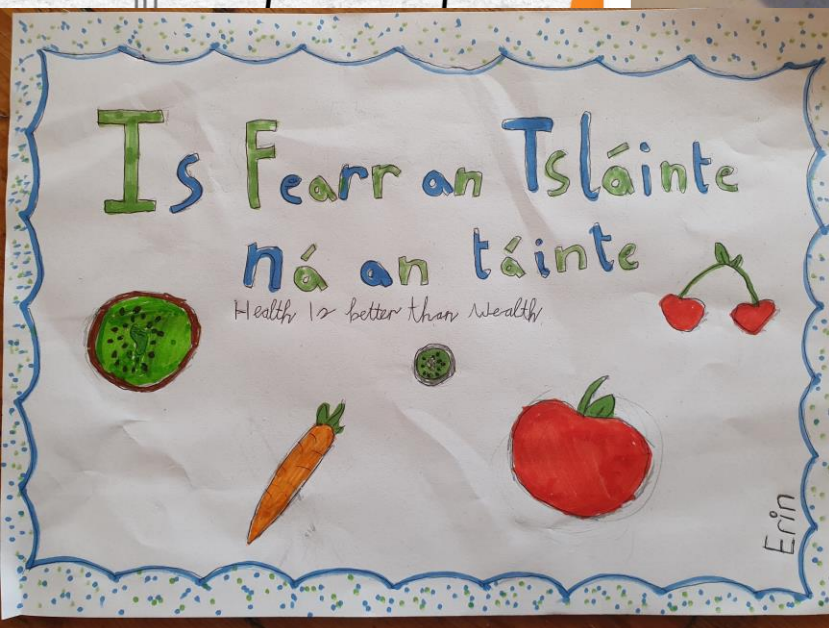 Is Fearr an Tsláinte
ná an táinte
Health Is better than wealth
Erin